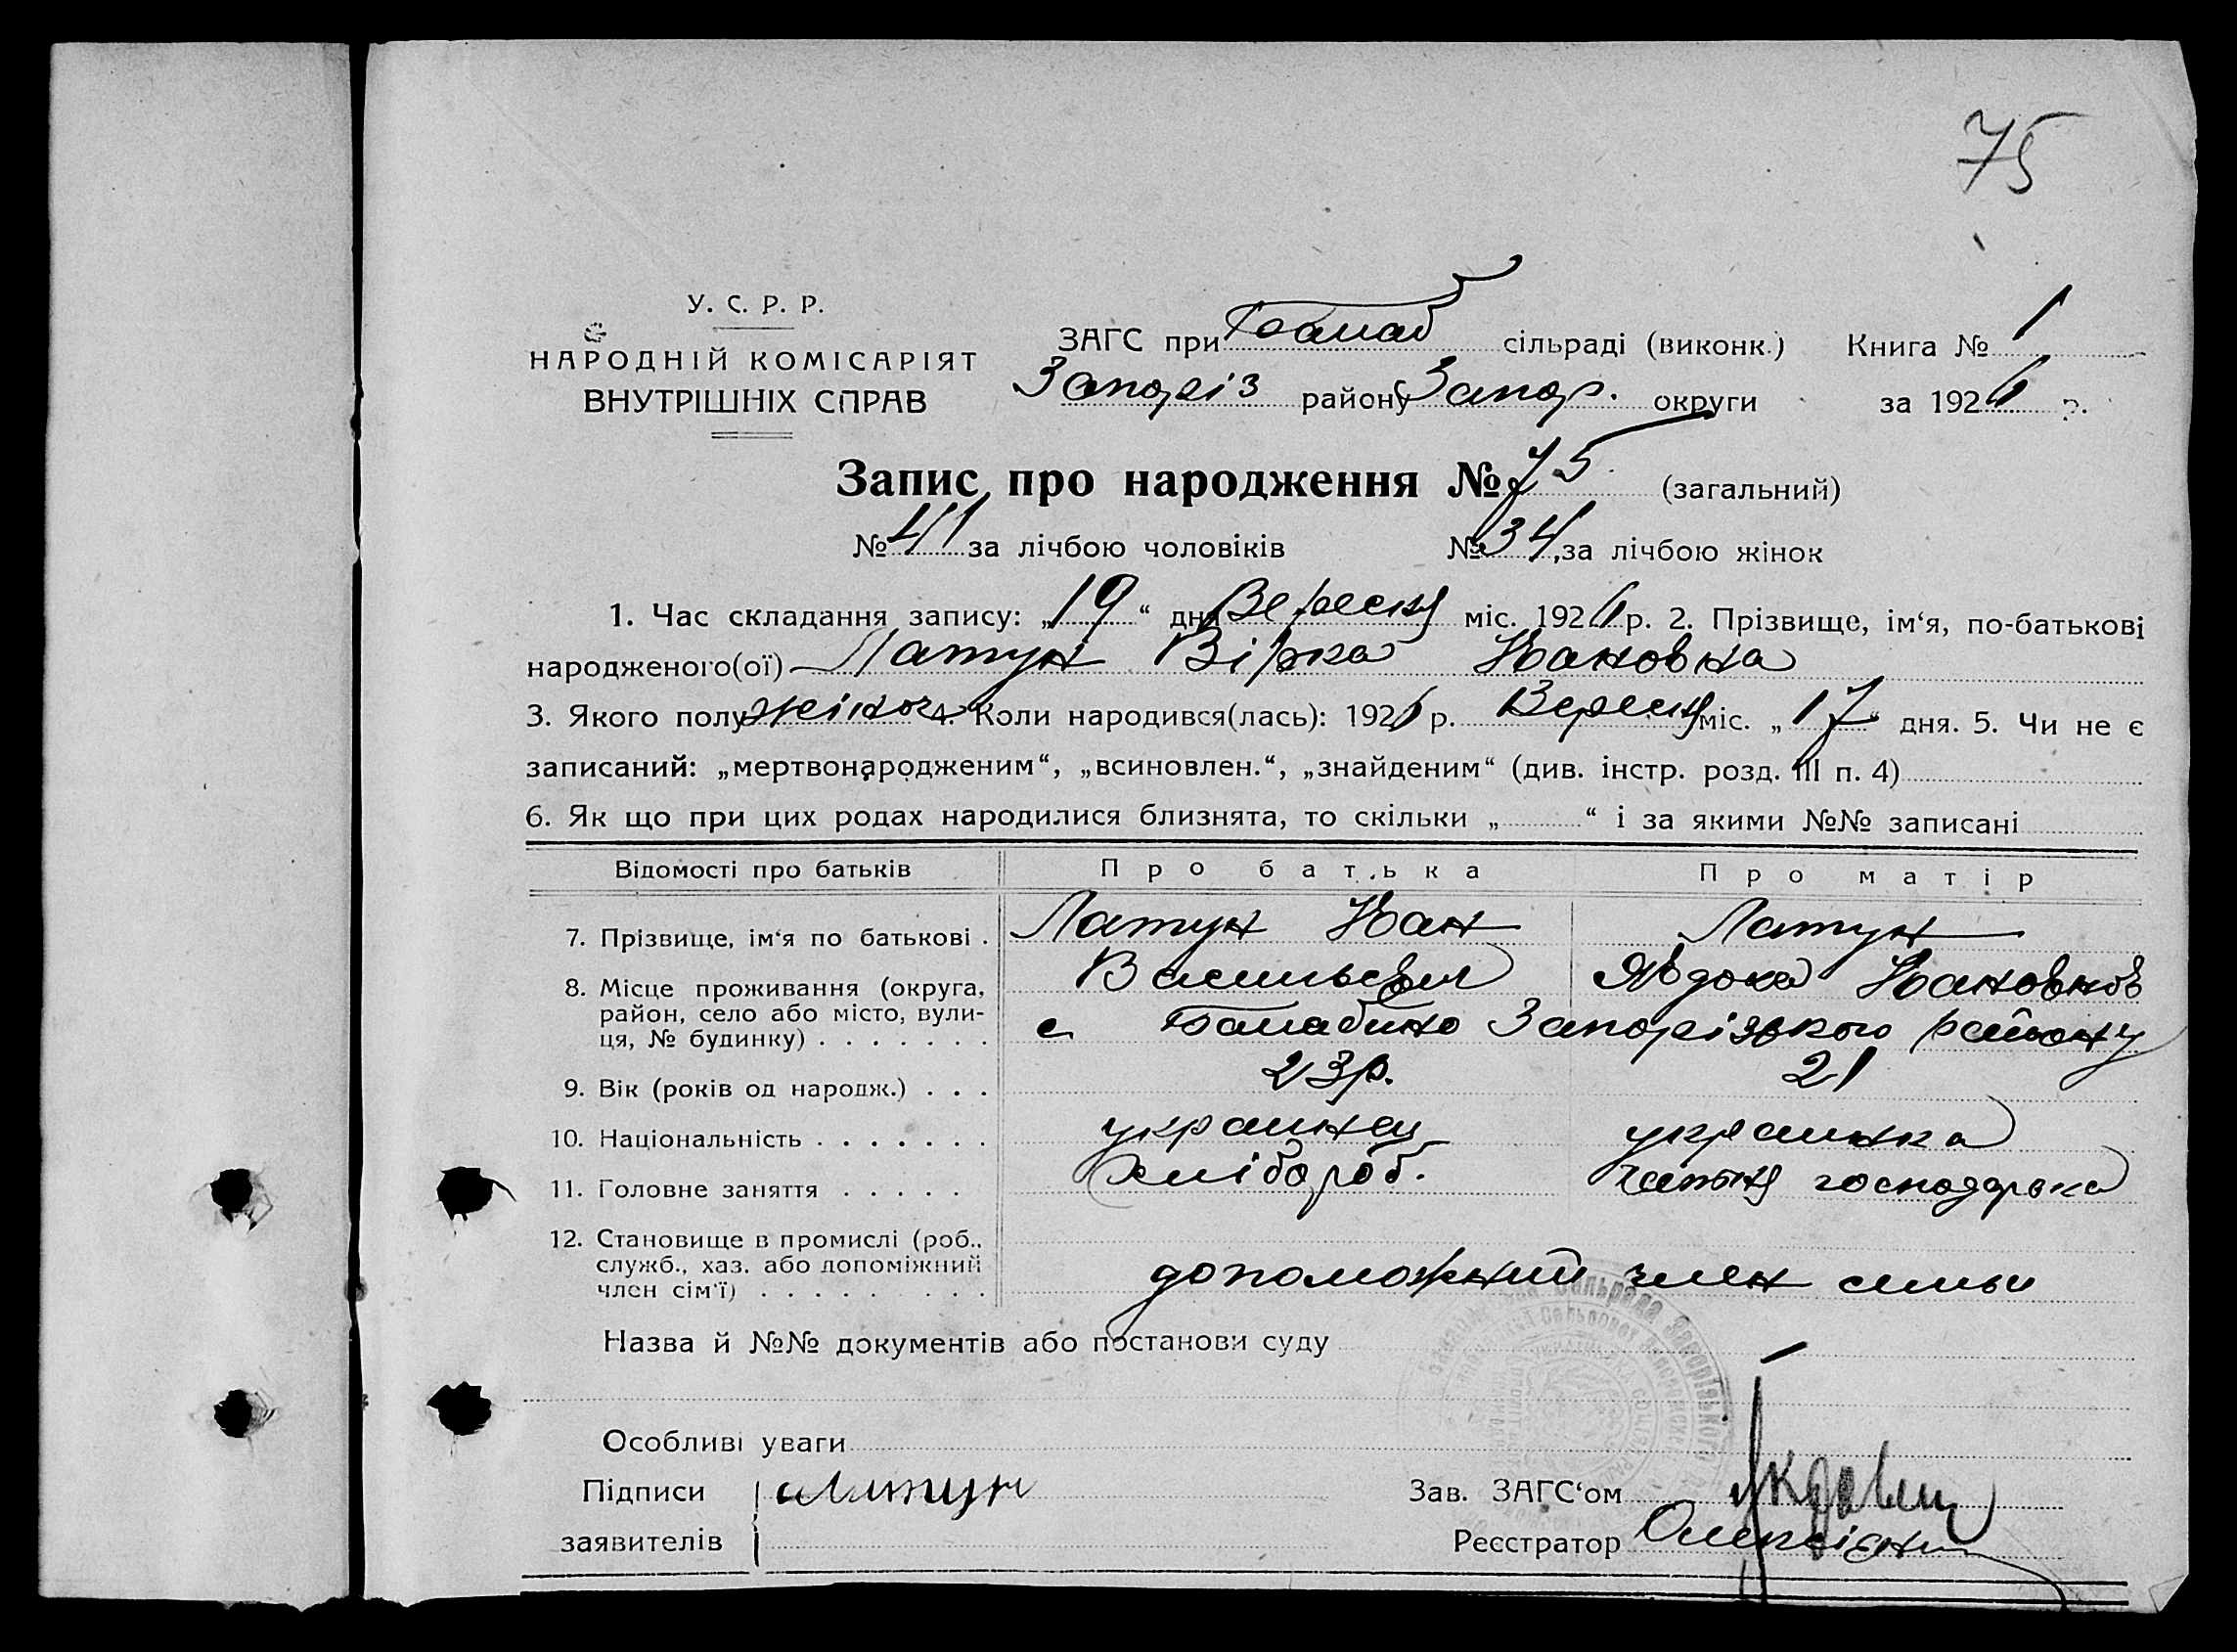 75
У. С. Р. Р.
НАРОДНІЙ КОМІСАРІЯТ
ВНУТРІШНІХ СПРАВ
ЗАГС при Балаб сільраді (виконк.) Книга № 1
Запоріз району Запор. округи за 1926 р.
Запис про народження № 75 (загальний)
№ 41 за лічбою чоловіків № 34 за лічбою жінок
1. Час складання запису: „19“ дня Вересня міс. 1926 р. 2. Прізвище, ім‘я, по-батькові
народженого(ої) Латун Вірка Ивановна
3. Якого полу жіноч 4. Коли народився(лась): 1926 р. Вересня міс. „17“ дня. 5. Чи не є
записаний: „мертвонародженим“, „всиновлен.“, „знайденим“ (див. інстр. розд. III п. 4)
6. Як що при цих родах народилися близнята, то скільки „ “ і за якими №№ записані
Відомості про батьків Про батька Про матір
7. Прізвище, ім‘я по батькові . Латун Иван Латун
Васильевич Явдоха Ивановнов
8. Місце проживання (округа,
район, село або місто, вули-
ця, № будинку) . . . . . . . с Балабино Запорізького району
9. Вік (років од народж.) . . . 23р. 21
10. Національність . . . . . . . украинец украинка
11. Головне заняття . . . . . хлібороб. хатня господарька
12. Становище в промислі (роб.,
служб., хаз. або допоміжний
член сім‘ї) . . . . . . . . . допоможний член семьи
Назва й №№ документів або постанови суду
Особливі уваги
Підписи
заявителів
Латун
Зав. ЗАГС‘ом
Реєстратор